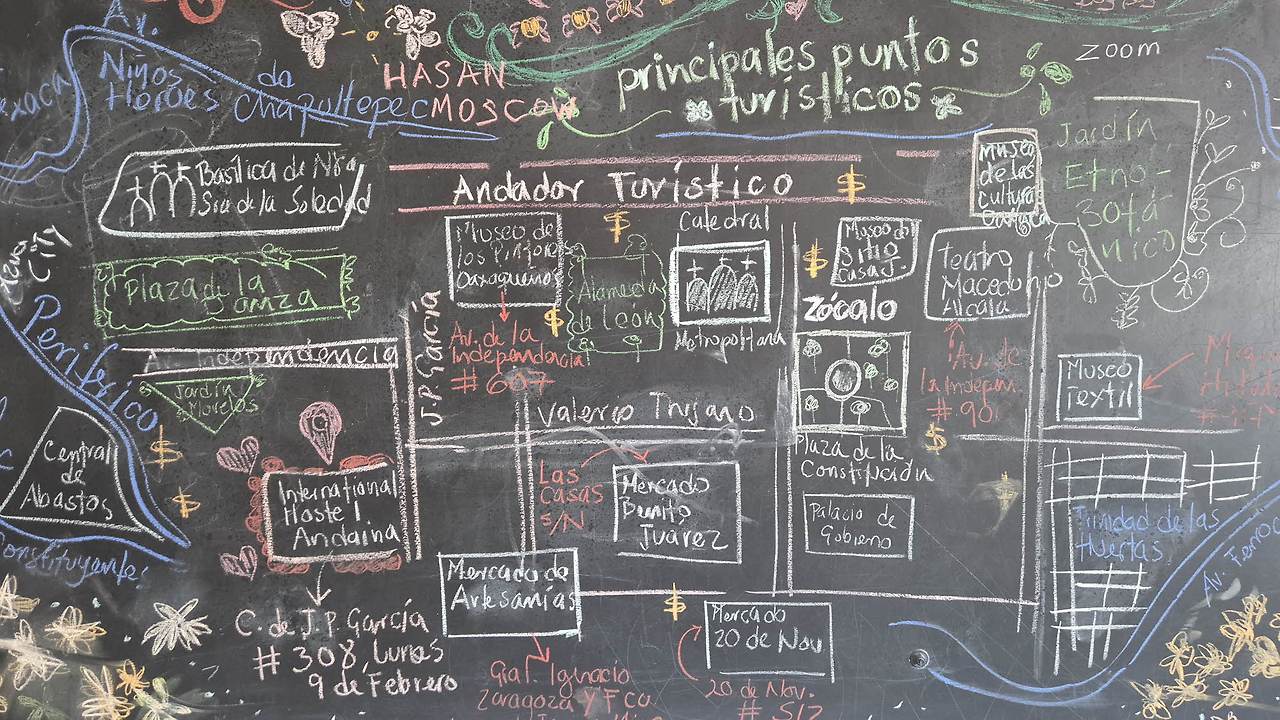 Av.
Niños
Héroes de
Chapultepec
HASAN
MOSCOW
principales puntos
turísticos
ZOOM
Basílica de Ntra
Sra de la Soledad
Andador Turístico $
Museo
de las
Culturas
Oaxaca
Jardín
Etno-
Botá
nico
City
Plaza de la
Danza
Museo de
los Pintores
Oaxaqueños
$
Alameda
de León
$
Catedral
Metropolitana
$
Museo del
Sitio
Casa J.
Zócalo
Teatro
Macedonio
Alcalá
Periférico
Av. Independencia
J.P. García
Av. de la
Independencia
# 607
Av. de
la Indepen.
# 901
Museo
Textil
Jardín
Morelos
Valerio Trujano
Central
de
Abastos
$
$
International
Hostel
Andaina
Las
Casas
S/N
Mercado
Benito
Juárez
Plaza de la
Constitución
$
$
Palacio de
Gobierno
Trinidad de las
Huertas
Av. Ferro
Constituyente
C. de J.P. García
# 308, Lunas
9 de Febrero
Mercado de
Artesanías
$
Mercado
20 de Nov
Gral. Ignacio
Zaragoza Y Fco.
20 de Nov.
# 512